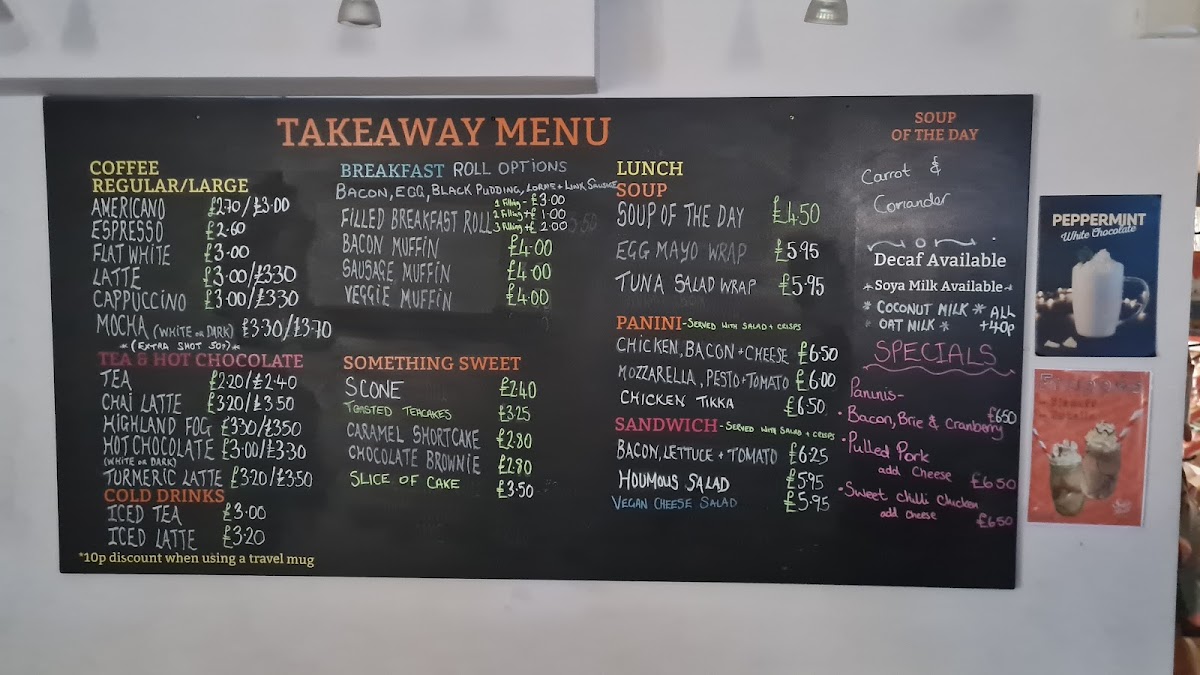 TAKEAWAY MENU
COFFEE
REGULAR/LARGE
AMERICANO £2.70/£3.00
ESPRESSO £2.60
FLAT WHITE £3.00
LATTE £3.00/£3.30
CAPPUCCINO £3.00/£3.30
MOCHA (WHITE OR DARK) £3.30/£3.70
*(EXTRA SHOT 50P)*
TEA & HOT CHOCOLATE
TEA £2.20/£2.40
CHAI LATTE £3.20/£3.50
HIGHLAND FOG £3.30/£3.50
HOT CHOCOLATE £3.00/£3.30
(WHITE OR DARK)
TURMERIC LATTE £3.20/£3.50
COLD DRINKS
ICED TEA £3.00
ICED LATTE £3.20
*10p discount when using a travel mug
BREAKFAST ROLL OPTIONS
BACON, EGG, BLACK PUDDING, LORNE + LINK SAUSAGE
1 Filling - £3.00
FILLED BREAKFAST ROLL 2 Filling +£ 1.00
3 Filling +£ 2.00
BACON MUFFIN £4.00
SAUSAGE MUFFIN £4.00
VEGGIE MUFFIN £4.00
SOMETHING SWEET
SCONE £2.40
TOASTED TEACAKES £3.25
CARAMEL SHORTCAKE £2.80
CHOCOLATE BROWNIE £2.80
SLICE OF CAKE £3.50
LUNCH
SOUP
SOUP OF THE DAY £4.50
EGG MAYO WRAP £5.95
TUNA SALAD WRAP £5.95
PANINI - SERVED WITH SALAD + CRISPS
CHICKEN, BACON + CHEESE £6.50
MOZZARELLA, PESTO + TOMATO £6.00
CHICKEN TIKKA £6.50
SANDWICH - SERVED WITH SALAD + CRISPS
BACON, LETTUCE + TOMATO £6.25
HOUMOUS SALAD £5.95
VEGAN CHEESE SALAD £5.95
SOUP
OF THE DAY
Carrot &
Coriander
Decaf Available
*Soya Milk Available*
* COCONUT MILK * ALL
* OAT MILK * +40p
SPECIALS
Paninis-
• Bacon, Brie & Cranberry £6.50
• Pulled Pork
add Cheese £6.50
• Sweet chilli chicken
add cheese £6.50
PEPPERMINT
White Chocolate